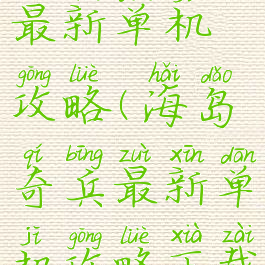 最新单机
gōng lüè hǎi dǎo
攻略(海岛
qí bīng zuì xīn dān
奇兵最新单
jī gōng lüè xià zài
机攻略下载